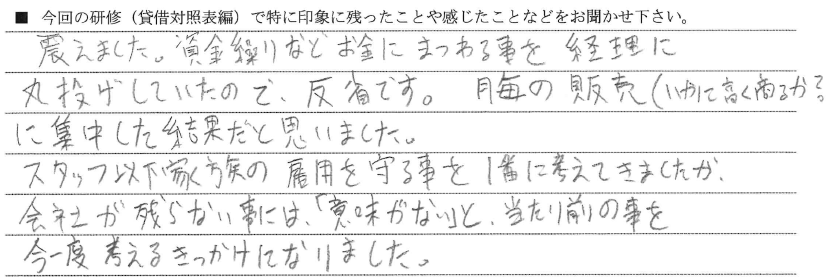 ■ 今回の研修（貸借対照表編）で特に印象に残ったことや感じたことなどをお聞かせ下さい。
震えました。資金繰りなどお金にまつわる事を経理に
丸投げしていたので、反省です。 月毎の販売（いかに高く商るか？
に集中した結果だと思いました。
スタッフ以下家族の雇用を守る事を1番に考えてきましたが、
会社が残らない事には、「意味がない」と、当たり前の事を
今一度考えるきっかけになりました。